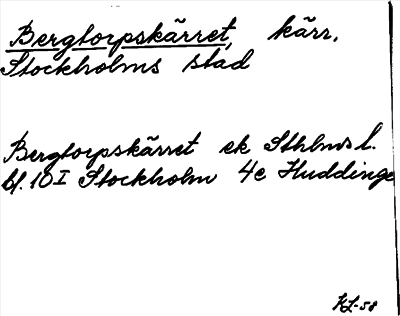 Bergtorpskärret, kärr.
Stockholms stad
Bergtorpskärret ek Sthlms l.
bl. 10 I Stockholm 4e Huddinge
KL-58